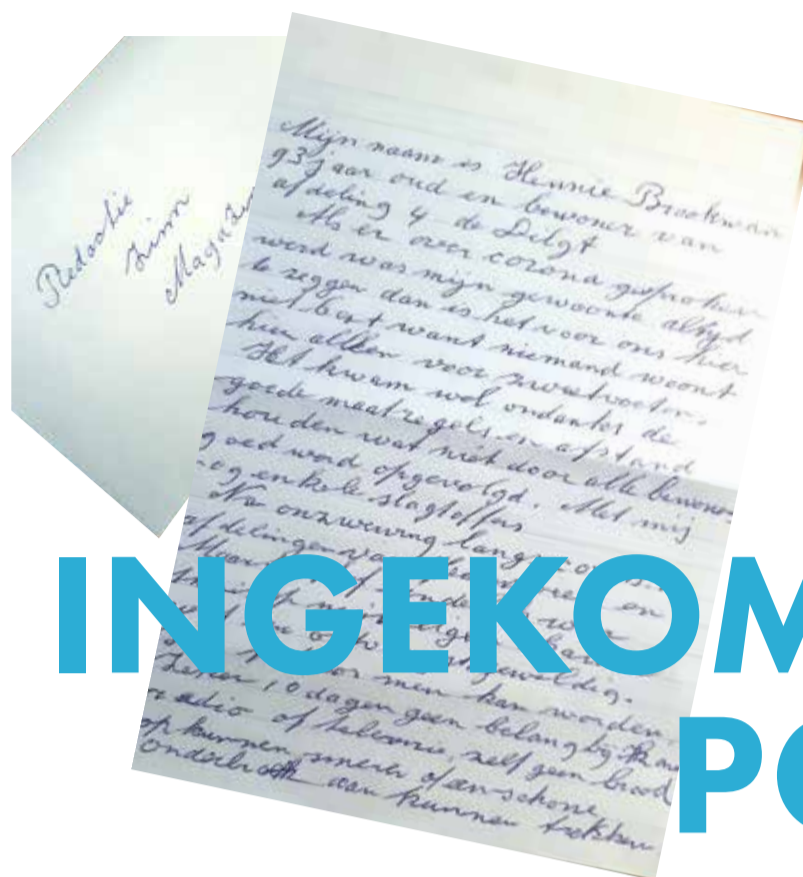 Redactie
Zinn
Magazin
Mijn naam is Hennie Brookman
93 jaar oud en bewoner van
afdeling 4 de Dilgt
Als er over corona gesproken
werd was mijn gewoonte altijd
te zeggen dan is het voor ons hier
niet best want niemand woont
hier alleen voor zweetvoeten.
Het kwam wel ondanks de
goede maatregels en afstand
houden wat niet door alle bewoners
goed word opgevolgd. Met mij
nog enkele slagtoffers
Na omzwerving langs
afdelingen van en
Maar
geweldig.
men kan worden
Zeker 10 dagen geen belang bij
radio of televisie, zelf geen brood
op kunnen smeren of een schone
onderbroek aan kunnen trekken
INGEKOM
PO